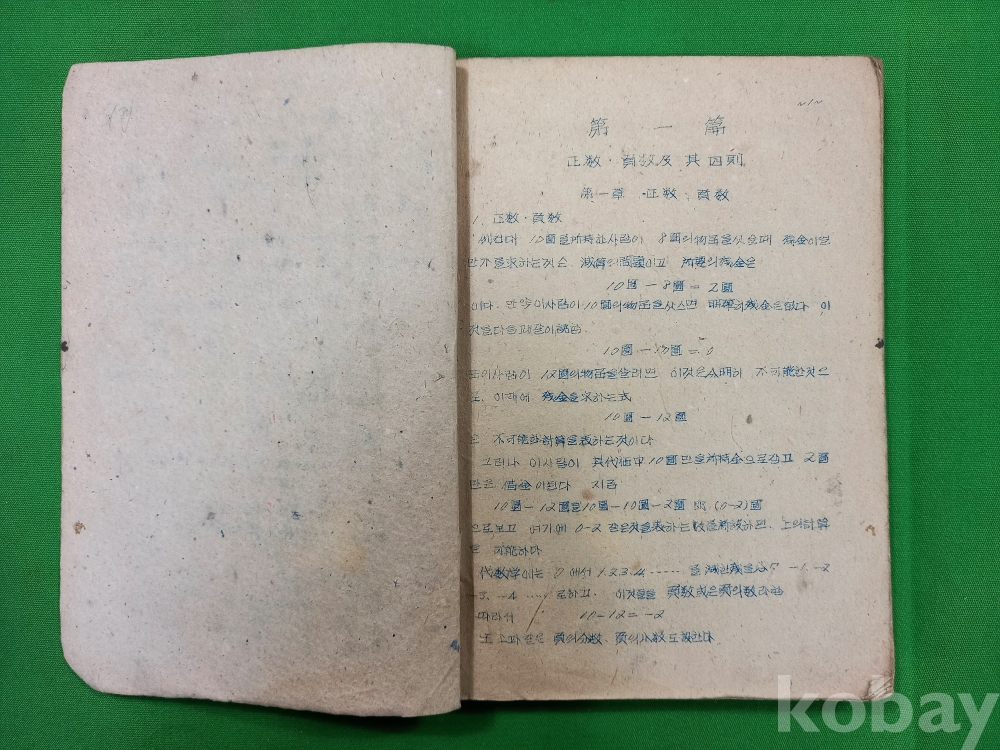 ~1~
第 一 篇
正数·負数及 其四則
第一章 正数·負数
1. 正数·負数
10圓을所持한사람이 8圓의物品을삿을때 残金이얼
만가를求하는것은 減算의問題이고 所要의残金은
10圓 - 8圓 = 2圓
이다. 만약이사람이10圓의物品을삿스면 残金은업다 이
것을다음과같이
10圓 - 10圓 = 0
이사람이 12圓의物品을살려면 이것은分明히 不可能한것으
로, 이때에 残金을求하는式
10圓 - 12圓
은 不可能한計算을表하는것이다
그러나 이사람이 其代価中10圓만을所持金으로갑고 2圓
만은 借金이된다 지금
10圓 - 12圓을10圓-10圓-2圓 (0-2)圓
으로보고 여기에 0-2 같은것을表하는数를 하면, 上의計算
은 可能하다
代数学에는 0에서 1.2.3.4 ...... 을 減한 -1. -2
-3. -4 ..... 로하고. 이것들을 負数或은負의数라한
따라서 10-12=-2
또 負의分数, 負의小数도
kobay